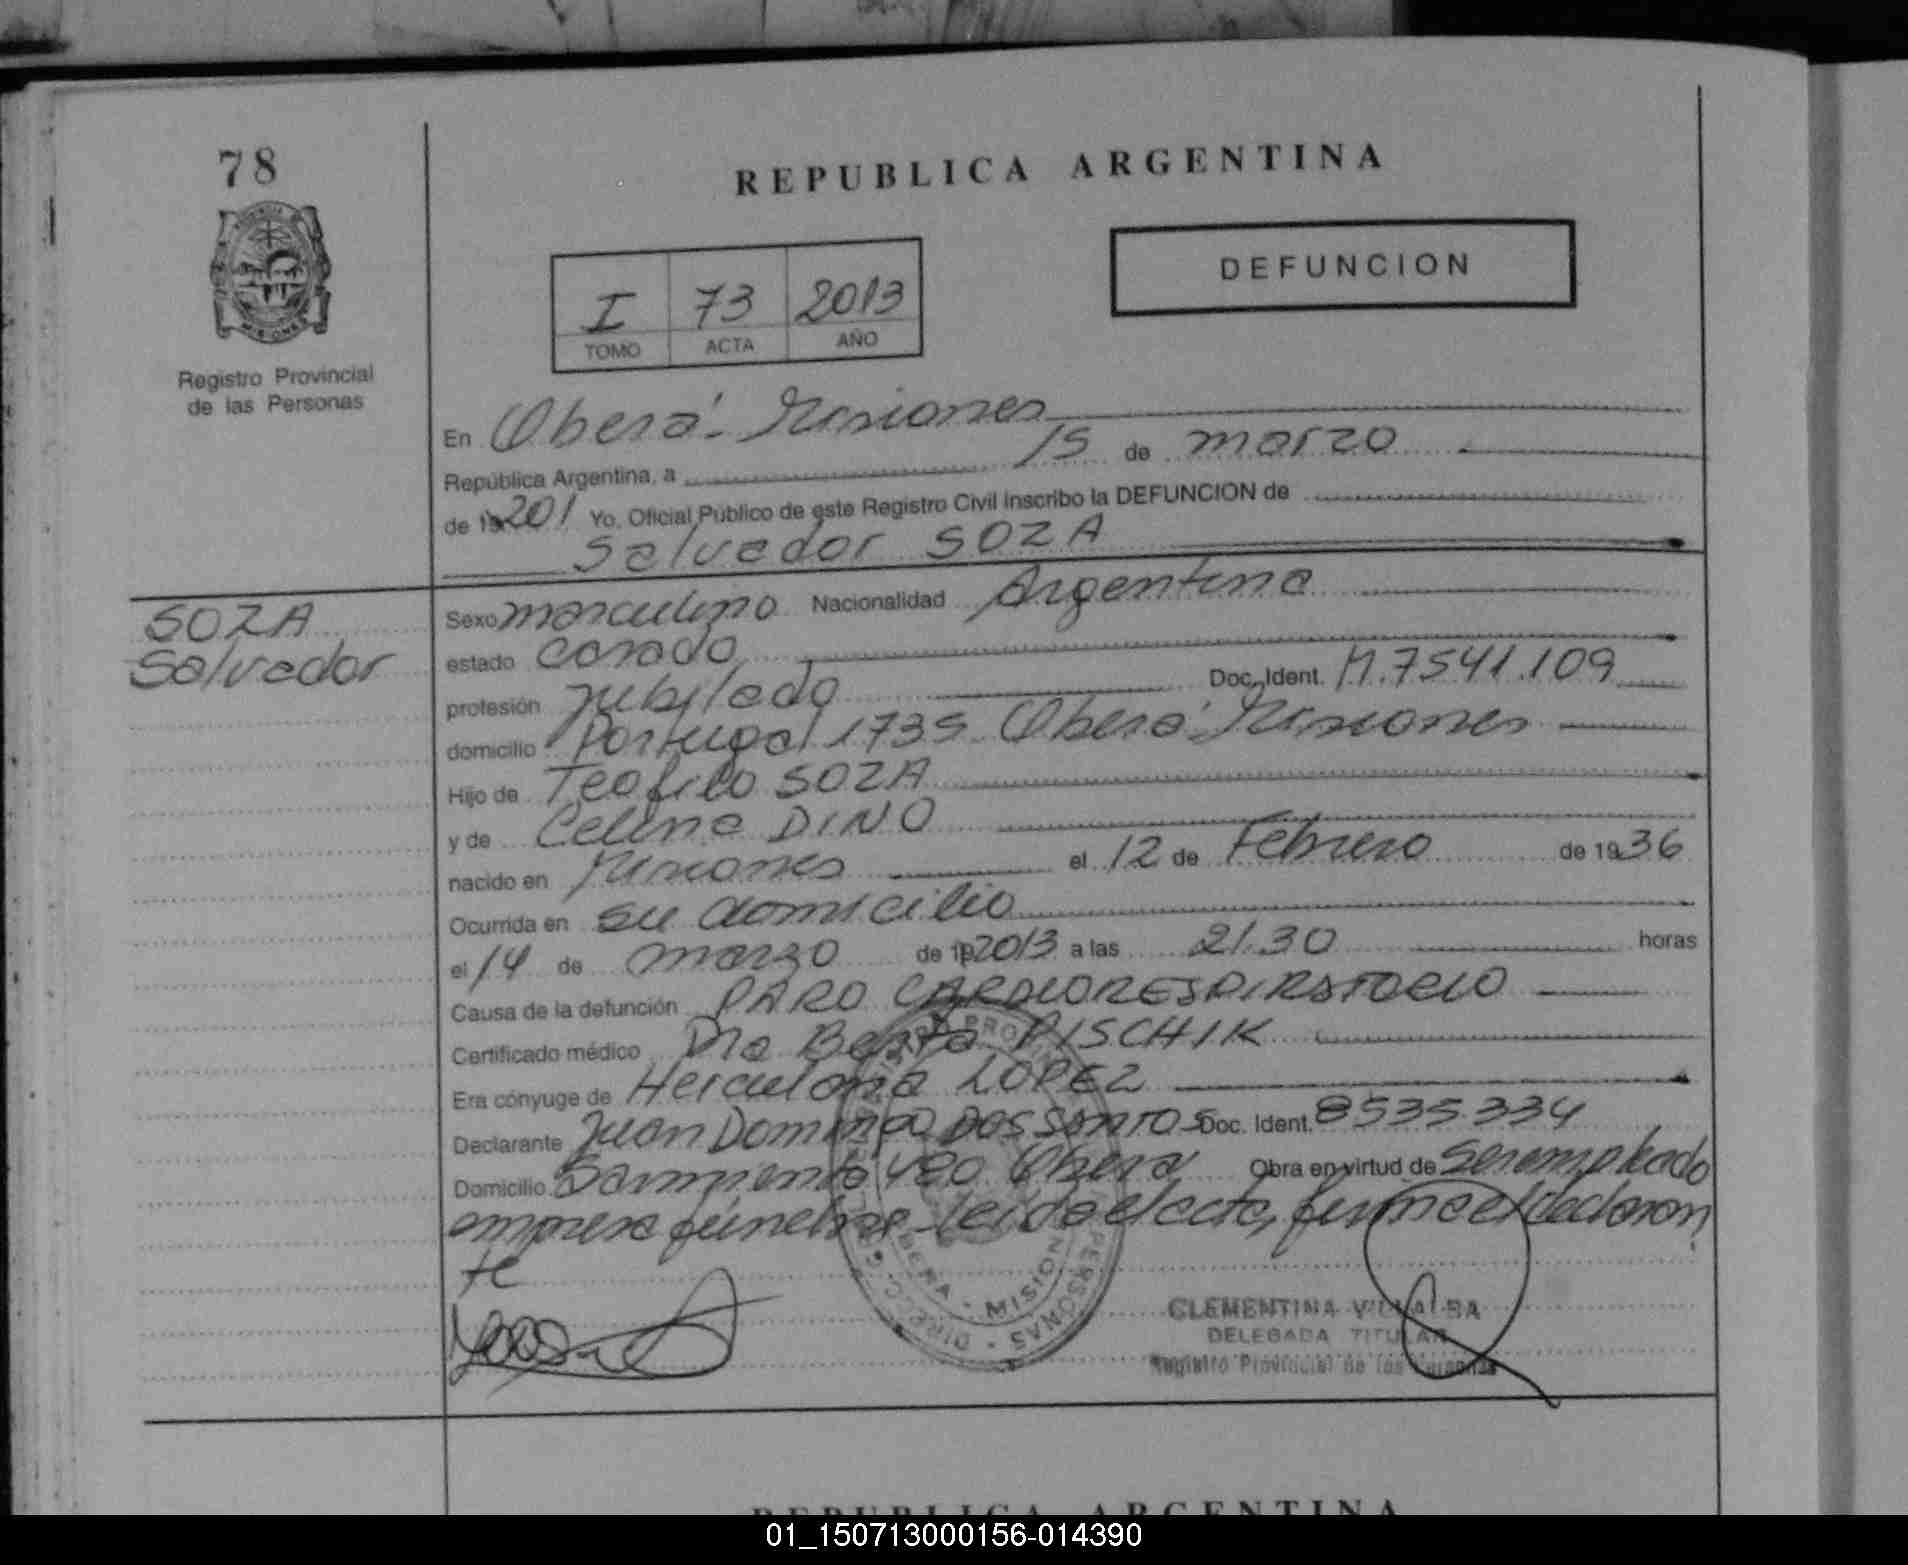 78
REPUBLICA ARGENTINA
DEFUNCION
I 73 2013
TOMO ACTA AÑO
Registro Provincial
de las Personas
En Oberá - Misiones
República Argentina, a 15 de marzo
de 19 201 Yo, Oficial Público de este Registro Civil inscribo la DEFUNCION de
Salvador SOZA
SOZA
Salvador
Sexo masculino Nacionalidad Argentina
estado casado
profesión jubilado Doc. Ident. M.7541.109
domicilio Portugal 1735 Oberá - Misiones
Hijo de Teofilo SOZA
y de Celina DINO
nacido en Misiones el 12 de Febrero de 19 36
Ocurrida en su domicilio
el 14 de marzo de 19 2013 a las 21.30 horas
Causa de la defunción PARO CARDIORESPIRATORIO
Certificado médico Dra Berta PISCHIK
Era cónyuge de Herculana LOPEZ
Declarante Juan Domingo DOS SANTOS Doc. Ident. 8535334
Domicilio Sarmiento 420 Oberá Obra en virtud de ser empleado
empresa fúnebre - leida el acta, firma el declaran
te
OBERA - MISIONES
CLEMENTINA VILLALBA
DELEGADA TITULAR
Registro Provincial de las Personas
REPUBLICA ARGENTINA
01_150713000156-014390